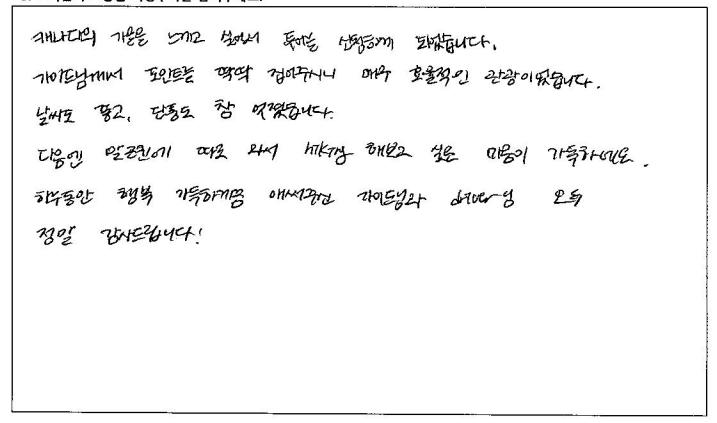 캐나다의 가을을 느끼고 싶어서 투어를 신청하게 되었습니다.
가이드님께서 포인트를 딱딱 집어주시니 매우 효율적인 관광이었습니다.
날씨도 좋고, 단풍도 참 멋졌습니다.
다음엔 알곤퀸에 따로 와서 캠핑 해보고 싶은 마음이 가득하네요.
하루동안 행복 가득하게끔 애써주신 가이드님과 driver님 모두
정말 감사드립니다!